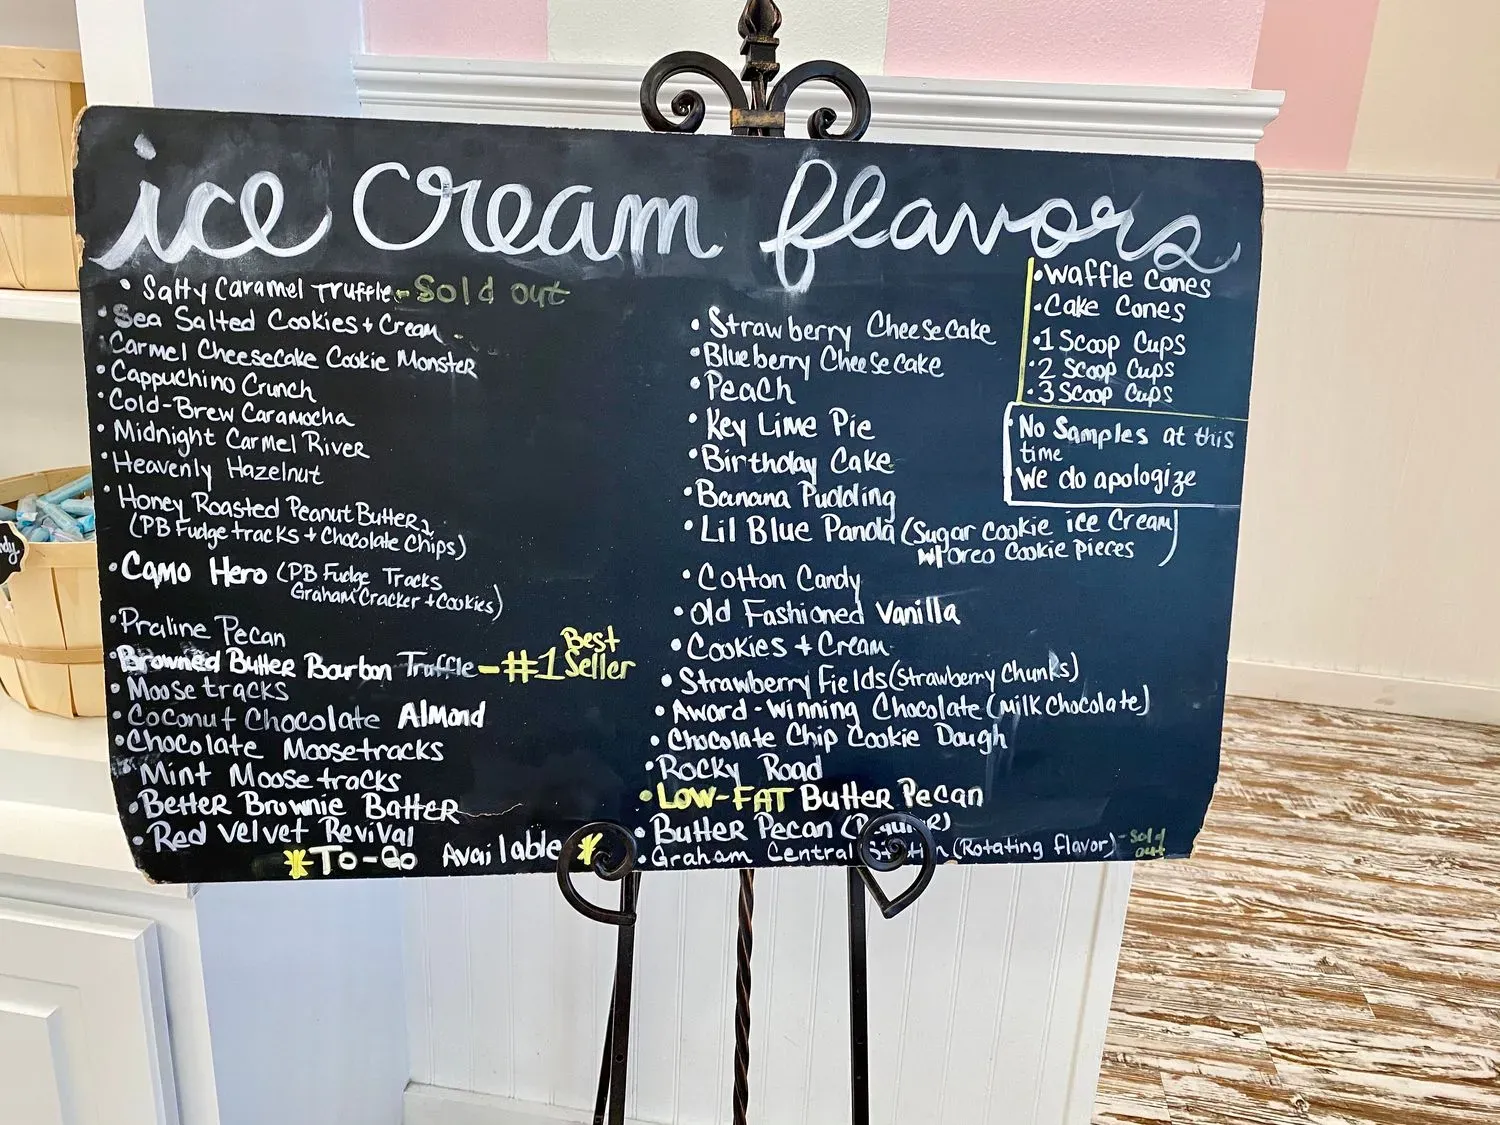 ice cream flavors
• Salty Caramel Truffle - Sold out
• Sea Salted Cookies + Cream
• Carmel Cheesecake Cookie Monster
• Cappuchino Crunch
• Cold-Brew Caramocha
• Midnight Carmel River
• Heavenly Hazelnut
• Honey Roasted Peanut Butter
(PB Fudge tracks + Chocolate Chips)
• Camo Hero (PB Fudge Tracks
Graham Cracker + Cookies)
• Praline Pecan
• Browned Butter Bourbon Truffle - #1 Best Seller
• Moosetracks
• Coconut Chocolate Almond
• Chocolate Moosetracks
• Mint Moosetracks
• Better Brownie Batter
• Red Velvet Revival
* To-Go Available *
• Strawberry Cheesecake
• Blueberry Cheesecake
• Peach
• Key Lime Pie
• Birthday Cake
• Banana Pudding
• Lil Blue Panda (Sugar cookie ice cream)
w/ oreo cookie pieces
• Cotton Candy
• Old Fashioned Vanilla
• Cookies + Cream
• Strawberry Fields (Strawberry Chunks)
• Award-Winning Chocolate (Milk Chocolate)
• Chocolate Chip Cookie Dough
• Rocky Road
• LOW-FAT Butter Pecan
• Butter Pecan (Regular)
• Graham Central Station (Rotating flavor) - Sold out
• Waffle Cones
• Cake Cones
• 1 Scoop Cups
• 2 Scoop Cups
• 3 Scoop Cups
• No Samples at this
time
We do apologize